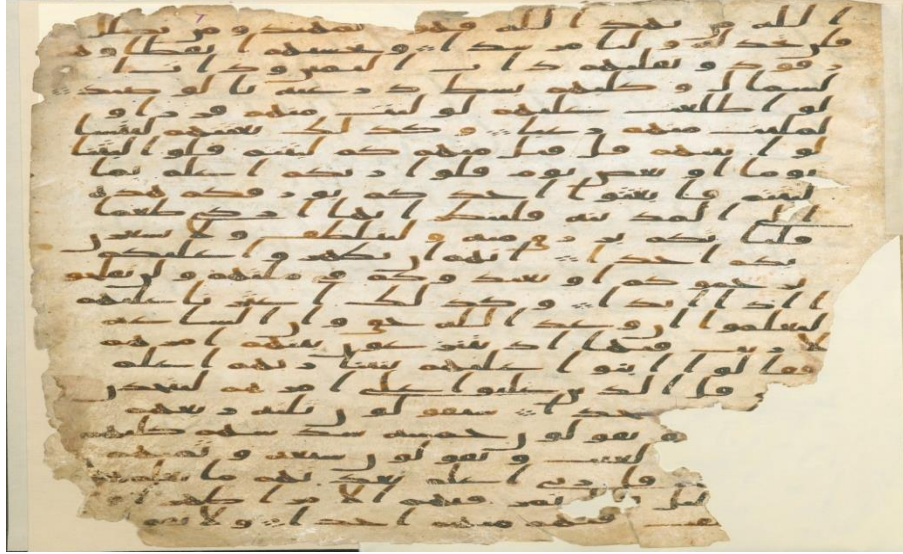 ا لله من يهد ا لله فهو ا لمهتد و من يضلل
فلن تجد له و ليا مر شدا و تحسبهم ا يقظا و هم
ر قود و نقلبهم ذ ا ت ا ليمين و ذ ا ت ا
لشمال و كلبهم بسط ذ ر عيه با لو صيد
لو ا طلعت عليهم لو ليت منهم فر ر ا و
لمليت منهم ر عبا و كذ لك بعثنهم ليتسا
لو ا بينهم قل قيل منهم كم لبثتم قلو ا لبثنا
يو ما ا و بعض يو م قلو ا ر بكم ا علم بما
لبثتم فا بعثو ا ا حد كم بو ر قكم هذه
ا لى ا لمد ينه فلينظر ا يها ا ز كى طعما
فليا تكم بر ز ق منه و ليتلطف و لا يشعرن
بكم ا حد ا ا نهم ا ن يظهر و ا عليكم
ير جمو كم ا و يعيد و كم في ملتهم و لن تفلحو
ا ا ذ ا ا بد ا و كذ لك ا عثر نا عليهم
ليعلمو ا ا ن و عد ا لله حق و ا ن ا لسا عه
لا ر يب فيها ا ذ يتنز عو ن بينهم ا مر هم
فقا لو ا ا بنو ا عليهم بنينا ر بهم ا علم
قل ا لذ ين غلبو ا على ا مر هم لنتخذن
جد ا سيقو لو ن ثلثه ر بعهم
و يقو لو ن خمسه سد سهم كلبهم
لغيب و يقو لو ن سبعه و ثمنهم
قل ر بي ا علم بعد تهم ما يعلمهم
قليل فلا تمر فيهم ا لا مر ا ظهر ا و
ـفت فيهم منهم ا حد ا و لا تقو